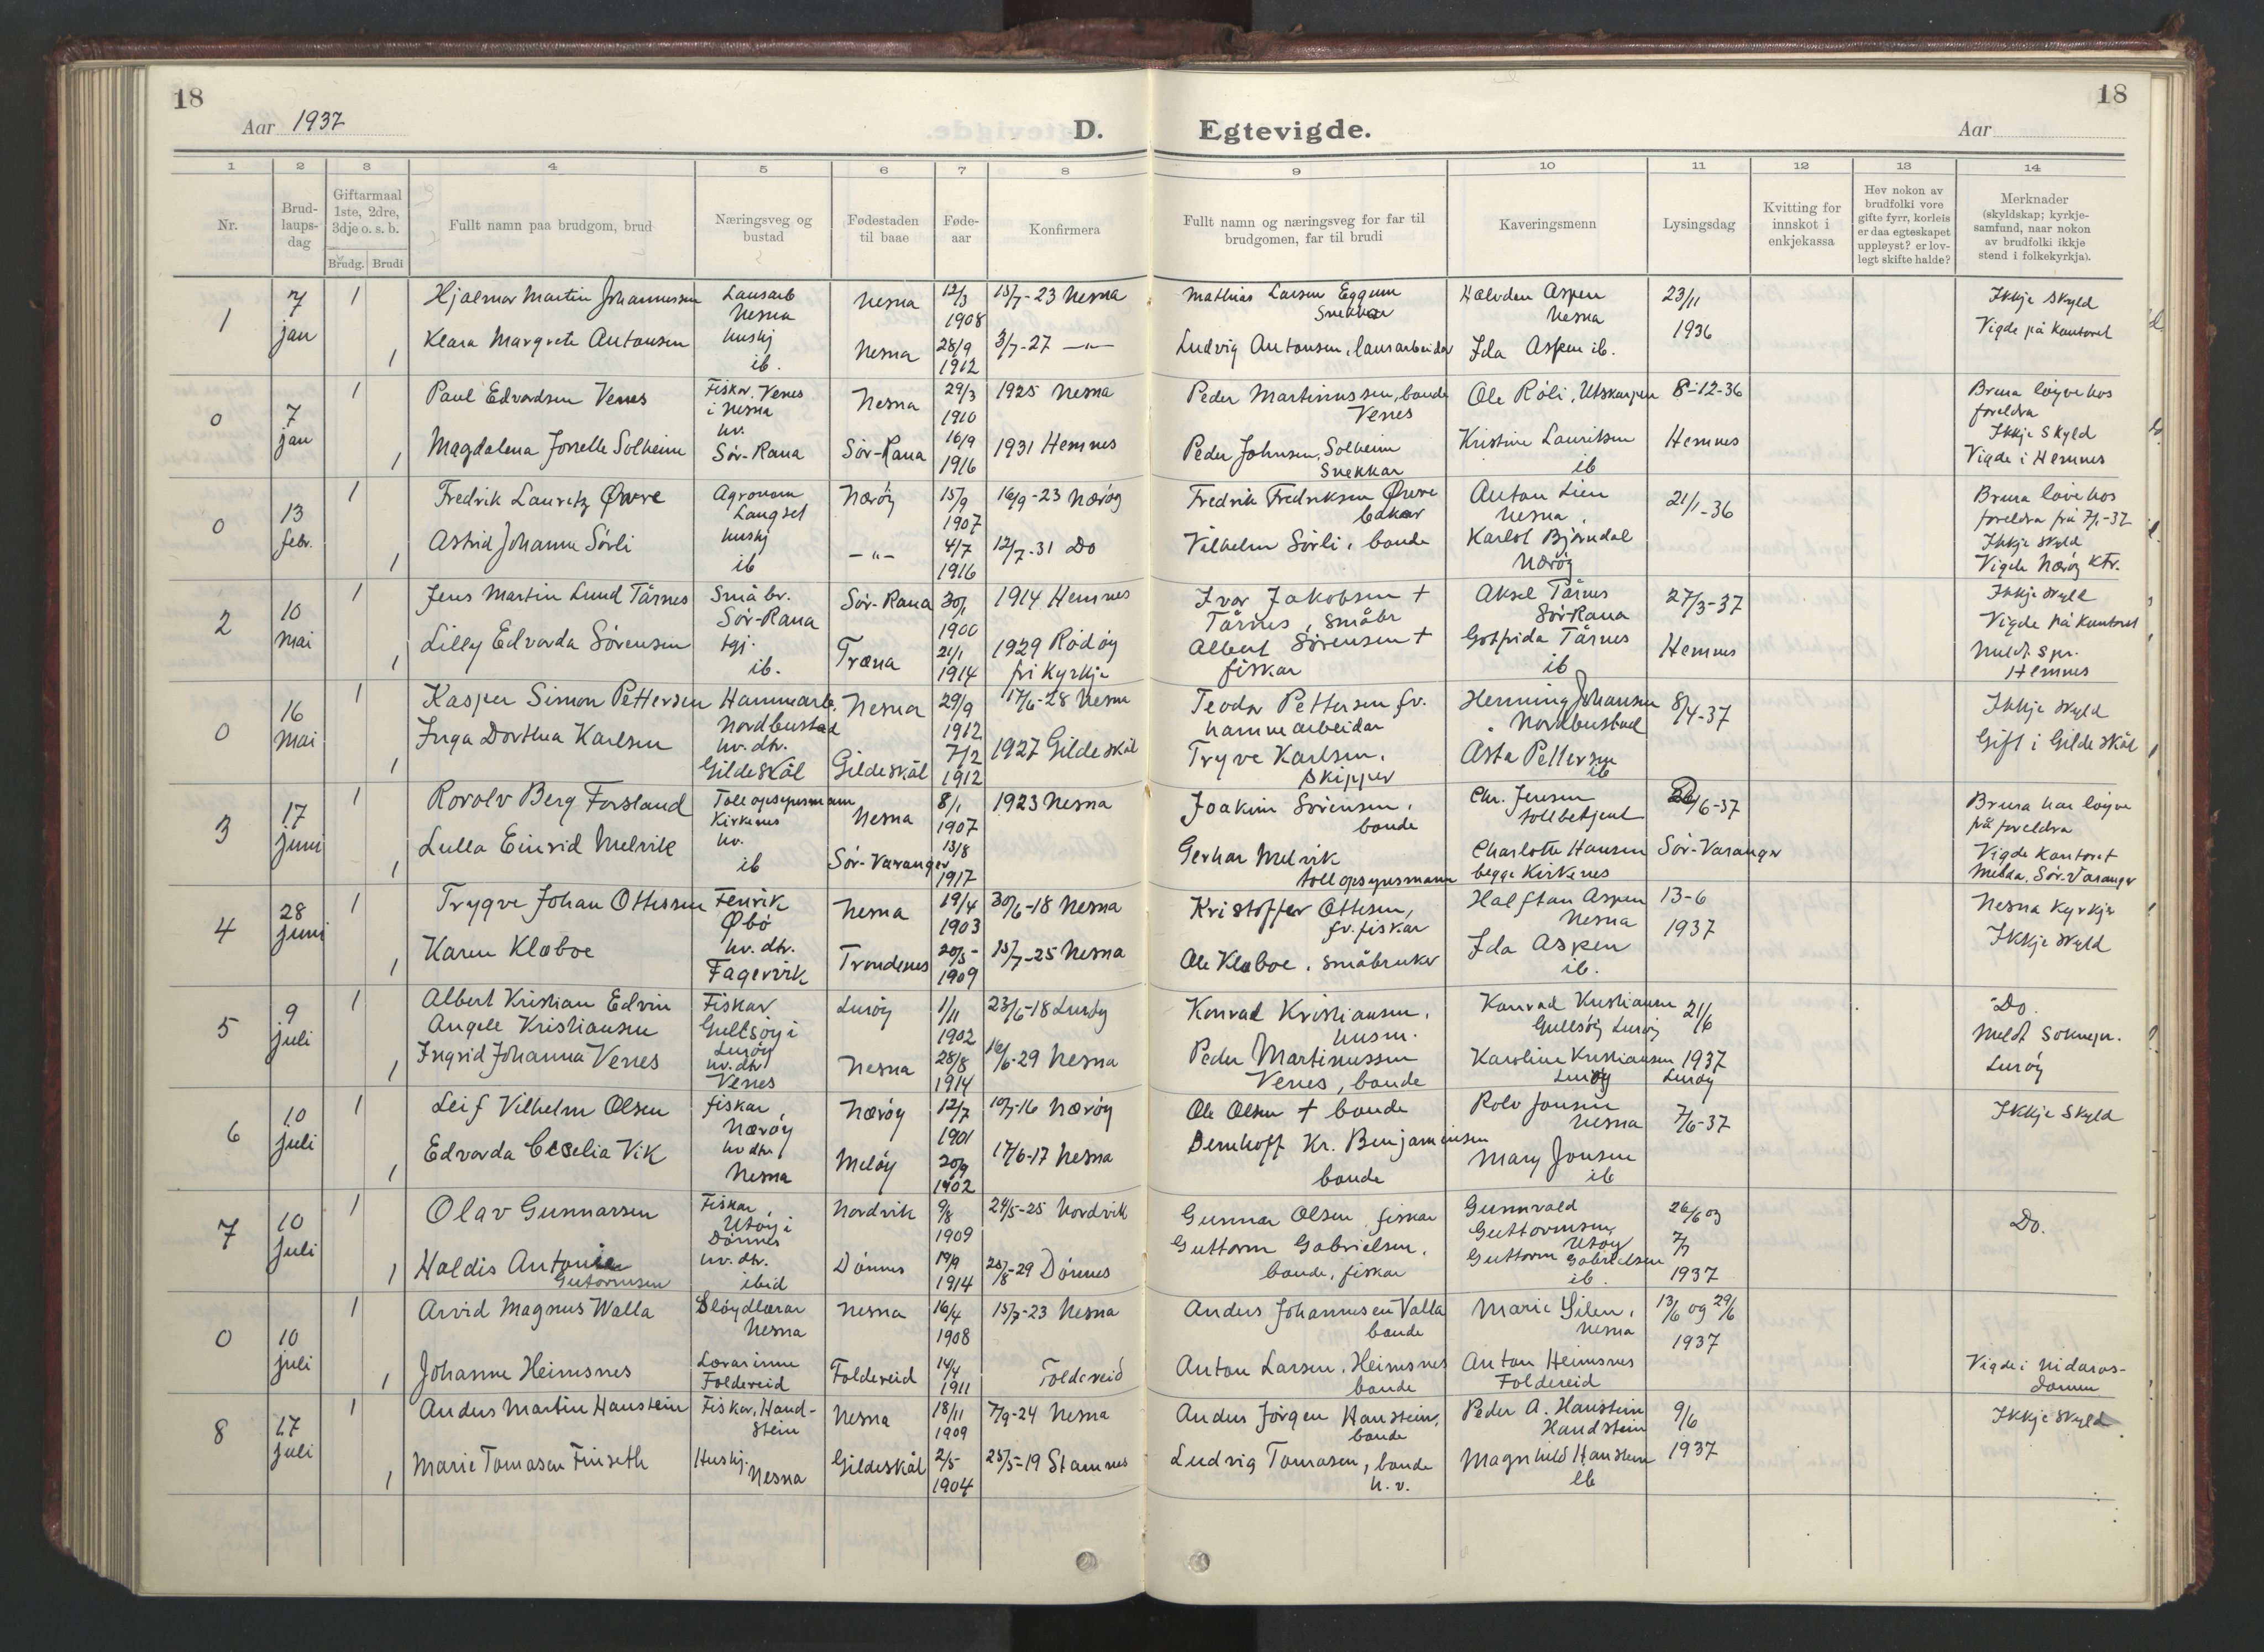 18
Aar 1937
D.
Egtevigde.
Aar
18
1 2 3 4 5 6 7 8 9 10 11 12 13 14
Nr.
Brud-
laups-
dag
Giftarmaal
1ste, 2dre,
3dje o. s. b.
Brudg. Brudi
Fullt namn paa brudgom, brud
Næringsveg og
bustad
Fødestaden
til baae
Føde-
aar
Konfirmera
Fullt namn og næringsveg for far til
brudgomen, far til brudi
Kaveringsmenn
Lysingsdag
Kvitting for
innskot i
enkjekassa
Hev nokon av
brudfolki vore
gifte fyrr, korleis
er daa egteskapet
uppløyst? er lov-
legt skifte halde?
Merknader
(skyldskap; kyrkje-
samfund, naar nokon
av brudfolki ikkje
stend i folkekyrkja).
1
7
jan
1
Hjalmar Martin Johannessen
Lausarb
Nesna
Nesna
12/3
1908
15/7-23 Nesna
Mathias Larsen Eggum
Snekkar
Halvdan Aspen
Nesna
23/11
1936
Ikkje skyld
Vigde på kontoret
1
Klara Margrete Antonsen
hushj
ib.
Nesna
28/9
1912
3/7-27 —"—
Ludvig Antonsen, lausarbeidar
Ida Aspen ib.
0
7
jan
1
Paul Edvardsen Venes
Fiskar, Venes
i Nesna
Nesna
29/3
1910
1925 Nesna
Peder Martinussen, bonde
Venes
Ole Röli, Utskarpen
8-12-36
Brura löyve hos
foreldra
Ikkje skyld
Vigde i Hemnes
1
Magdalena Jorselle Solheim
hv.
Sör-Rana
Sör-Rana
16/9
1916
1931 Hemnes
Peder Johnsen, Solheim
Snekkar
Kristine Lauritsen
ib
Hemnes
0
13
febr.
1
Fredrik Lauretz Øvre
Agronom
Langset
Næröy
15/9
1907
16/9-23 Næröy
Fredrik Fredriksen Øvre
bakar
Anton Lien
Nesna
21/1-36
Brura löve hos
foreldra frå 7/1-37
Ikkje skyld
Vigde Næröy ktr.
1
Astrid Johanne Sörli
hushj
ib
—"—
4/7
1916
12/7-31 Do
Vilhelm Sörli, bonde
Karlot Björndal
Næröy
2
10
mai
1
Jens Martin Lund Tårnes
Småbr.
Sör-Rana
Sör-Rana
30/1
1900
1914 Hemnes
Ivar Jakobsen +
Tårnes, småbr
Aksel Tårnes
Sör-Rana
27/3-37
Ikkje skyld
Vigde på kontoret
Meldt spr.
Hemnes
1
Lilly Edvarda Sörensen
tgj.
ib.
Træna
21/1
1914
1929 Rödöy
fri kyrkje
Albert Sörensen +
fiskar
Gotfrida Tårnes
ib
Hemnes
0
16
mai
1
Kasper Simon Pettersen
Hamnearb.
Nordbustad
Nesna
29/9
1912
17/6-28 Nesna
Teodor Pettersen fv.
hamnearbeidar
Henning Johansen
Nordbustad
8/4-37
Ikkje skyld
Gift i Gildeskål
1
Inga Dorthea Karlsen
hv. dtr.
Gildeskål
Gildeskål
7/12
1912
1927 Gildeskål
Tryve Karlsen,
skipper
Åsta Pettersen
ib
3
17
juni
1
Rovolv Berg Forsland
Tollopsynsmann
Kirkenes
Nesna
8/1
1907
1923 Nesna
Joakim Sörensen,
bonde
Chr. Jensen
tollbetjent
/6-37
Brura har löyve
på foreldra
Vigde kontoret
Melda. Sör-Varanger
1
Lulla Einrid Melvik
hv.
ib
Sör-Varanger
13/8
1917
Gerhar Melvik
tollopsynsmann
Charlotte Hansen
begge Kirkenes
Sör-Varanger
4
28
juni
1
Trygve Johan Ottesen
Fenrik
Øbö
Nesna
19/4
1903
30/6-18 Nesna
Kristoffer Ottesen,
fv. fiskar
Halftan Aspen
Nesna
13-6
1937
Nesna kyrkje
Ikkje skyld
1
Karen Klæboe
hv. dtr.
Fagervik
Trondenes
20/5-
1909
15/7-25 Nesna
Ole Klæboe, småbruker
Ida Aspen
ib.
5
9
juli
1
Albert Kristian Edvin
Angell Kristiansen
Fiskar
Gullsöy i
Luröy
Luröy
1/11
1902
23/6-18 Luröy
Konrad Kristiansen,
husm.
Konrad Kristiansen
Gullsöy Luröy
21/6
1937
Luröy
Do.
Meldt Soknepr.
Luröy
1
Ingrid Johanna Venes
hv. dtr
Venes
Nesna
28/8
1914
16/6-29 Nesna
Peder Martinussen
Venes, bonde
Karoline Kristiansen
Luröy
6
10
juli
1
Leif Vilhelm Olsen
fiskar,
Næröy
Næröy
12/7
1901
10/7-16 Næröy
Ole Olsen + bonde
Rolv Jonsen
Nesna
7/6-37
Ikkje skyld
1
Edvarda Cecelia Vik
hv dtr
Nesna
Melöy
20/9
1902
17/6-17 Nesna
Bernhoff Kr. Benjaminsen
bonde
Mary Jonsen
ib
7
10
juli
1
Olav Gunnarsen
Fiskar,
Utöy i
Dönnes
Nordvik
9/8
1909
24/5-25 Nordvik
Gunnar Olsen, fiskar
Gunnvald
Guttormsen
Utöy
26/6 og
7/7
1937
Do.
1
Haldis Antonie
Guttormsen
hv. dtr.
ibid
Dönnes
19/9
1914
25/8-29 Dönnes
Guttorm Gabrielsen,
bonde, fiskar
Guttorm Gabrielsen
ib.
0
10
juli
1
Arvid Magnus Walla
Slöydlærar
Nesna
Nesna
16/4
1908
15/7-23 Nesna
Anders Johannesen Valla
bonde
Marie Silen,
Nesna
13/6 og 29/6
1937
Vigde i Nidaros-
domen
1
Johanne Heimsnes
Lærarinne
Foldereid
Foldereid
14/4
1911
Foldereid
Anton Larsen, Heimsnes
bonde
Anton Heimsnes
Foldereid
8
17
juli
1
Anders Martin Hanstein
Fiskar, Hand-
stein
Nesna
18/11
1909
7/9-24 Nesna
Anders Jörgen Hanstein,
bonde
Peder A. Hanstein
Handstein
9/6
1937
Ikkje skyld
1
Marie Tomasen Finseth
Hushj.
Nesna
Gildeskål
2/5
1904
25/5-19 Stamnes
Ludvig Tomasen, bonde
h. v.
Magnhild Hanstein
ib